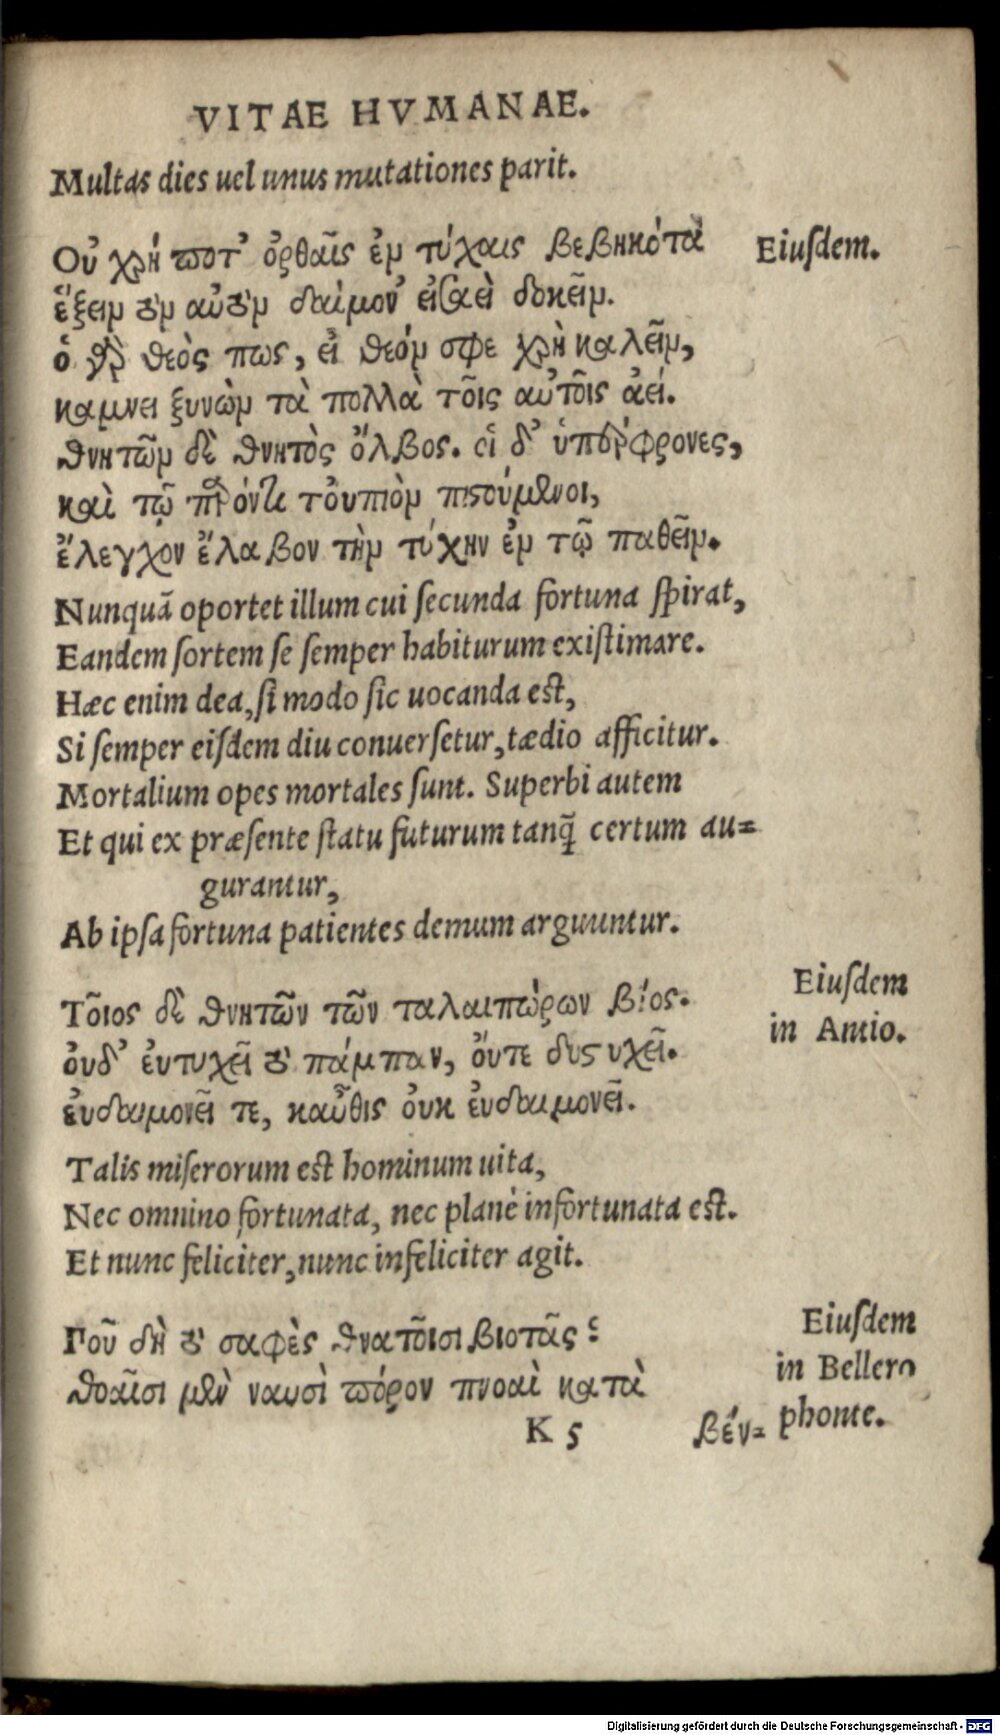 VITAE HVMANAE.
Multas dies uel unus mutationes parit.
Οὐ χρή ποτ' ὀρθαῖς ἐν τύχαις βεβηκότα Eiusdem.
ἕξειν τὸν αὐτὸν δαίμον' εἰσαεὶ δοκεῖν.
ὁ γὰρ θεὸς πως, εἰ θεόν σφε χρὴ καλεῖν,
καμνει ξυνὼν τὰ πολλὰ τοῖς αὐτοῖς ἀεί.
θνητῶν δὲ θνητὸς ὄλβος. οἱ δ' ὑπέρφρονες,
καὶ τῷ παρόντι τοὐπιὸν πιστούμενοι,
ἔλεγχον ἔλαβον τὴν τύχην ἐν τῷ παθεῖν.
Nunquã oportet illum cui secunda fortuna spirat,
Eandem sortem se semper habiturum existimare.
Hæc enim dea, si modo sic uocanda est,
Si semper eisdem diu conuersetur, tædio afficitur.
Mortalium opes mortales sunt. Superbi autem
Et qui ex præsente statu futurum tanq̃ certum au=
gurantur,
Ab ipsa fortuna patientes demum arguuntur.
Τοῖος δὲ θνητῶν τῶν ταλαιπώρων βίος. Eiusdem
οὐδ' ἐυτυχεῖ τὸ πάμπαν, ὄυτε δυστυχεῖ. in Antio.
ἐυδαιμονεῖ τε, καὖθις ὀυκ ἐυδαιμονεῖ.
Talis miserorum est hominum uita,
Nec omnino fortunata, nec planè infortunata est.
Et nunc feliciter, nunc infeliciter agit.
Ποῦ δὴ τὸ σαφὲς θνατοῖσι βιοτᾶς; Eiusdem
θοαῖσι μὲν ναυσὶ πόρον πνοαὶ κατὰ in Bellero
K 5 βέν= phonte.
Digitalisierung gefördert durch die Deutsche Forschungsgemeinschaft - DFG